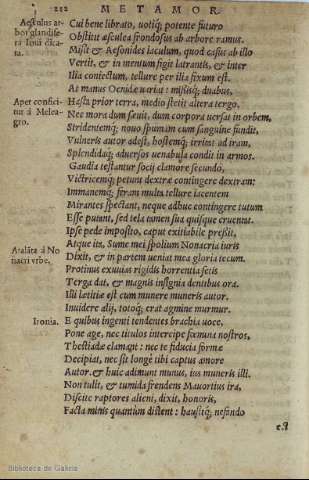 252 METAMOR.
Aesculus arbor glandifera Ioui dicata.
Cui bene librato, uotiq; potente futuro
Obstitit æsculea frondosus ab arbore ramus.
Misit & Aesonides iaculum, quod casus ab illo
Vertit, & in meritum figit latrantis, & inter
Ilia coniectum, tellure per ilia fixum est.
At manus Oenidæ uariat: missisq; duabus,
Aper conficitur á Meleagro.
Hasta prior terra, medio stetit altera tergo.
Nec mora dum sæuit, dum corpora uersat in orbem,
Stridentemq; nouo spumam cum sanguine fundit,
Vulneris autor adest, hostemq; irritat ad iram,
Splendidaq; aduersos uenabula condit in armos.
Gaudia testantur socij clamore secundo,
Victricemq; petunt dextræ contingere dextram:
Immanemq; feram multa tellure iacentem
Mirantes spectant, neque adhuc contingere tutum
Esse putant, sed tela tamen sua quisque cruentat.
Ipse pede imposito, caput exitiabile pressit,
Atalãta á Nonacri vrbe.
Atque ita, Sume mei spolium Nonacria iuris
Dixit, & in partem ueniat mea gloria tecum.
Protinus exuuias rigidis horrentia setis
Terga dat, & magnis insignia dentibus ora.
Illi lætitiæ est cum munere muneris autor.
Inuidere alij, totoq; erat agmine murmur.
Ironia.
E quibus ingenti tendentes brachia uoce,
Pone age, nec titulos intercipe fœmina nostros,
Thestiadæ clamant: nec te fiducia formæ
Decipiat, nec sit longè tibi captus amore
Autor. & huic adimunt munus, ius muneris illi.
Non tulit, & tumida frendens Mauortius ira,
Discite raptores alieni, dixit, honoris,
Facta minis quantùm distent: hausitq; nefando
Biblioteca de Galicia